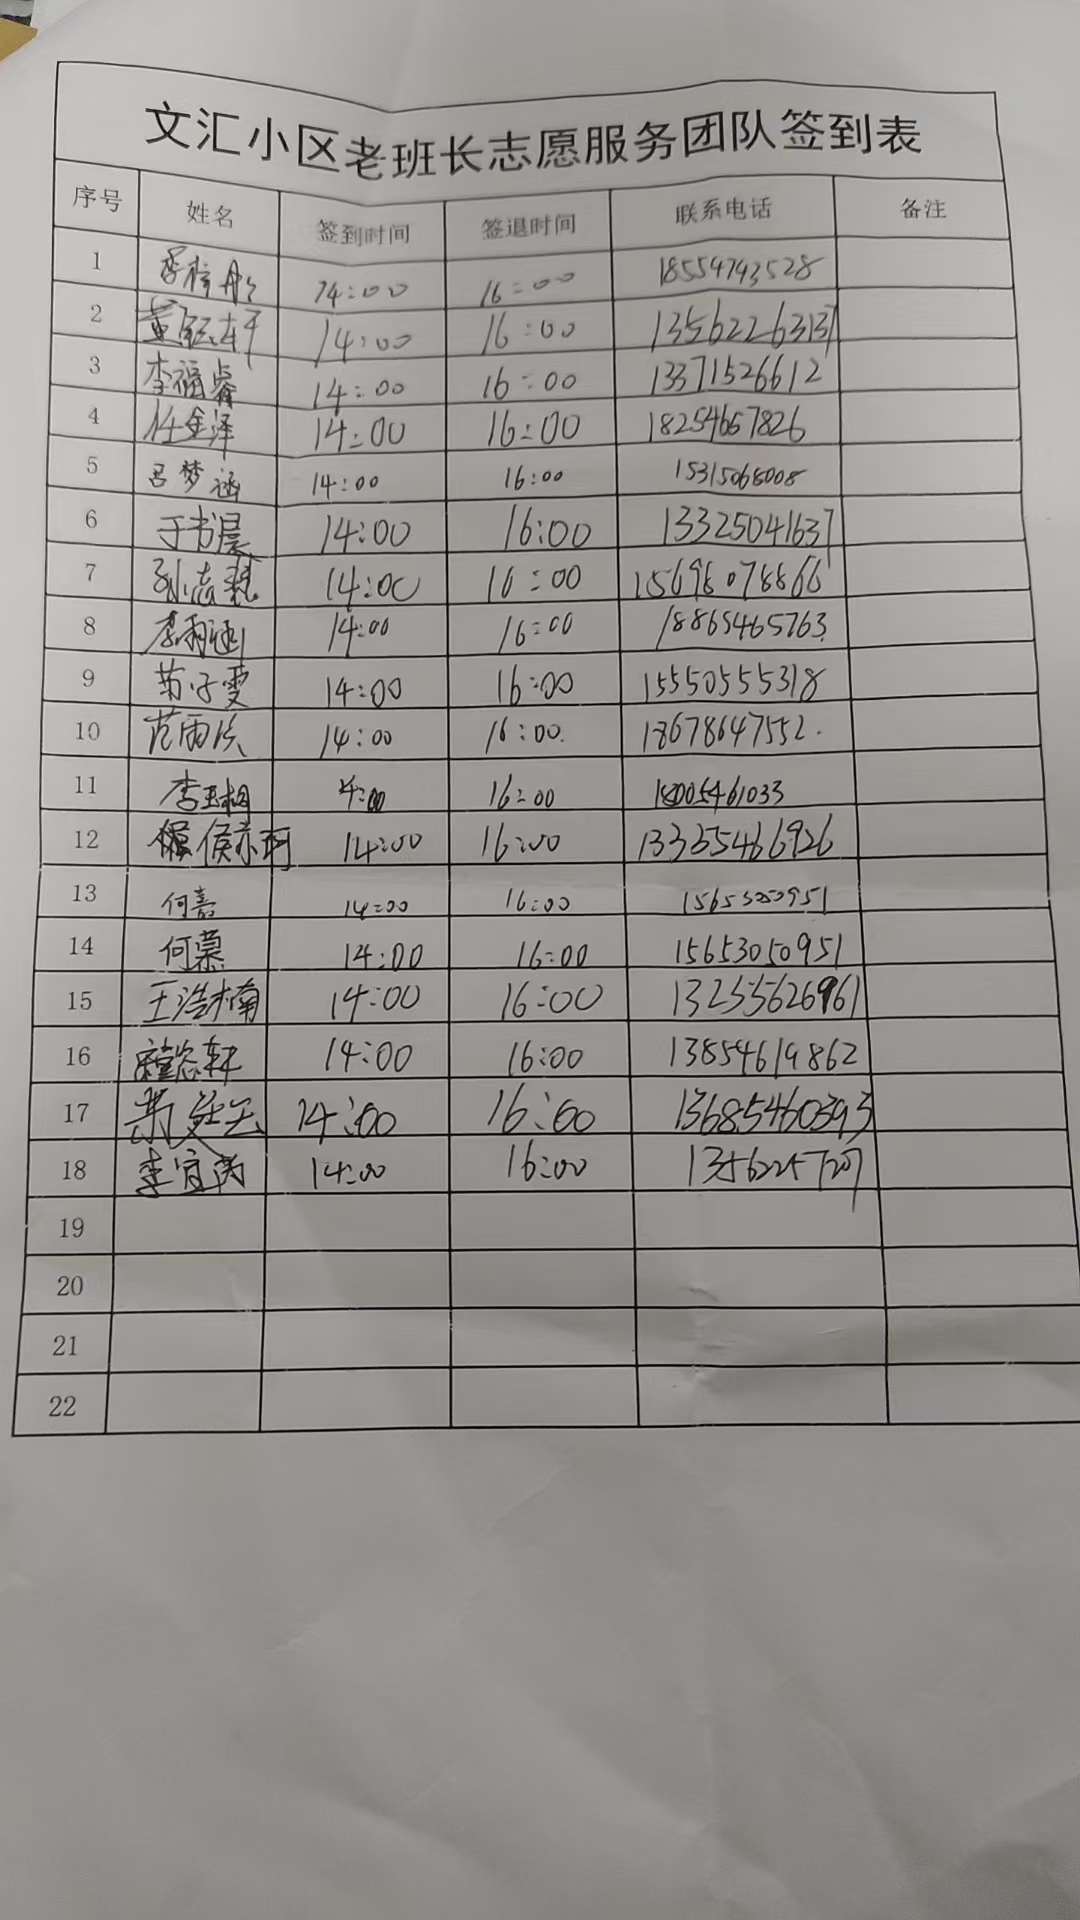 文汇小区老班长志愿服务团队签到表
序号 姓名 签到时间 签退时间 联系电话 备注
1 14:00 16:00 18554743528
2 14:00 16:00 13562263131
3 李福睿 14:00 16:00 13371526612
4 任金泽 14:00 16:00 18254657826
5 吕梦涵 14:00 16:00 15315068008
6 于书晨 14:00 16:00 13325041637
7 孙志 14:00 16:00 15698078866
8 李雨涵 14:00 16:00 18865465763
9 苟子雯 14:00 16:00 15550555318
10 范雨 14:00 16:00 18678647552
11 李玉桐 14:00 16:00 18005461033
12 侯亦珂 14:00 16:00 13355466926
13 何嘉 14:00 16:00 15653050951
14 何慕 14:00 16:00 15653050951
15 王浩楠 14:00 16:00 13255626961
16 14:00 16:00 13854619862
17 14:00 16:00 13685460393
18 李宜芮 14:00 16:00
19
20
21
22